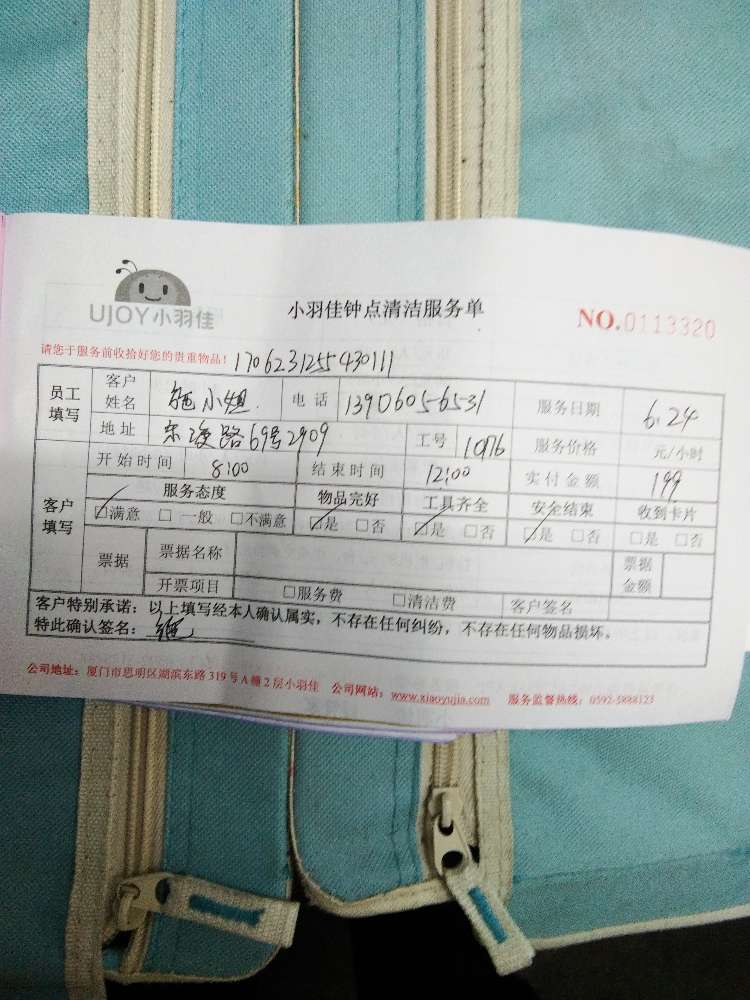 UJOY小羽佳
小羽佳钟点清洁服务单
NO.0113320
请您于服务前收拾好您的贵重物品! 1706231255430111
员工填写 客户姓名 施小姐 电话 13906056531 服务日期 6.24
地址 69号2909 工号 1076 服务价格 元/小时
客户填写 开始时间 8:00 结束时间 12:00 实付金额 199
服务态度 物品完好 工具齐全 安全结束 收到卡片
☑满意 □一般 □不满意 ☑是 □否 ☑是 □否 ☑是 □否 □是 □否
票据 票据名称 票据金额
开票项目 □服务费 □清洁费 客户签名
客户特别承诺:以上填写经本人确认属实,不存在任何纠纷,不存在任何物品损坏。
特此确认签名: 施
公司地址:厦门市思明区湖滨东路319号A幢2层小羽佳 公司网站:www.xiaoyujia.com 服务监督热线:0592-5888123